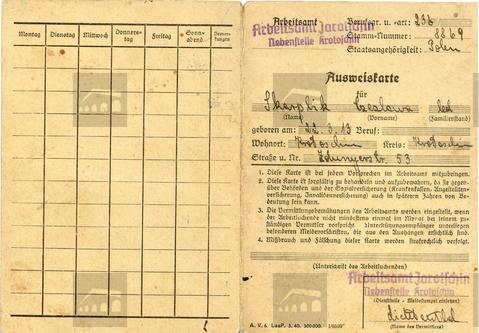 Montag Dienstag Mittwoch Donners-tag Freitag Sonn-abend Bemer-kungen
Arbeitsamt
Arbeitsamt Jarotschin
Nebenstelle Krotoschin
Berufsgr. u. -art: 23b
Stamm-Nummer: 8869
Staatsangehörigkeit: Polen
Ausweiskarte
für
Skorplik Czeslawa led
(Name) (Vorname) (Familienstand)
geboren am: 22.3.13 Beruf:
Wohnort: Krotoschin Kreis: Krotoschin
Straße u. Nr. 53
1. Diese Karte ist bei jedem Vorsprechen im Arbeitsamt mitzubringen.
2. Diese Karte ist sorgfältig zu behandeln und aufzubewahren, da sie gegen-
über Behörden und der Sozialversicherung (Krankenkassen, Angestellten-
versicherung, Invalidenversicherung) auch in späteren Jahren von Bedeu-
tung sein kann.
3. Die Vermittlungsbemühungen des Arbeitsamts werden eingestellt, wenn
der Arbeitsuchende nicht mindestens einmal im Monat bei seinem zu-
ständigen Vermittler vorspricht. Unterstützungsempfänger unterliegen
besonderen Meldevorschriften, die aus den Aushängen ersichtlich sind.
4. Mißbrauch und Fälschung dieser Karte werden strafrechtlich verfolgt.
(Unterschrift des Arbeitsuchenden)
Arbeitsamt Jarotschin
Nebenstelle Krotoschin
(Dienststelle - Meldestempel einsetzen)
(Name des Vermittlers)
A. V. 6 3. 40. 300000.